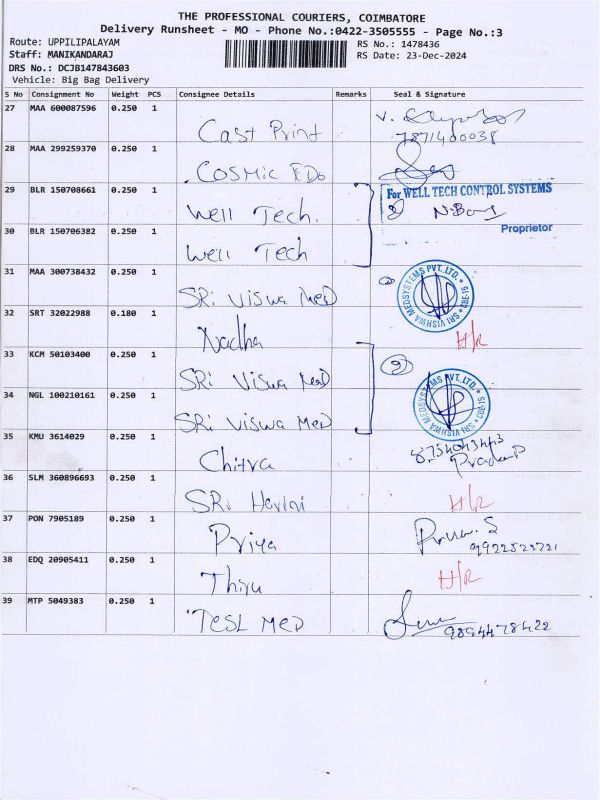 THE PROFESSIONAL COURIERS, COIMBATORE
Delivery Runsheet - MO - Phone No.:0422-3505555 - Page No.:3
Route: UPPILIPALAYAM
RS No.: 1478436
Staff: MANIKANDARAJ
RS Date: 23-Dec-2024
DRS No.: DCJB147843603
Vehicle: Big Bag Delivery
S No Consignment No Weight PCS Consignee Details Remarks Seal & Signature
27 MAA 600087596 0.250 1 Cast Print
7871400038
28 MAA 299259370 0.250 1 Cosmic EDo
29 BLR 150708661 0.250 1 Well Tech.
For WELL TECH CONTROL SYSTEMS
Proprietor
30 BLR 150706382 0.250 1 Well Tech
31 MAA 300738432 0.250 1 SRi Viswa Med
SRI VISHWA MEDSYSTEMS PVT. LTD. CBE-15
32 SRT 32022988 0.180 1 Nadha H/R
33 KCM 50103400 0.250 1 SRi Viswa Med 2
34 NGL 100210161 0.250 1 SRi Viswa Med
SRI VISHWA MEDSYSTEMS PVT. LTD. CBE-15
35 KMU 3614029 0.250 1 Chitra
Pradeep
36 SLM 360896693 0.250 1 SRi Harini H/R
37 PON 7905189 0.250 1 Priya
38 EDQ 20905411 0.250 1 Thiru H/R
39 MTP 5049383 0.250 1 TESL MED
9894478422